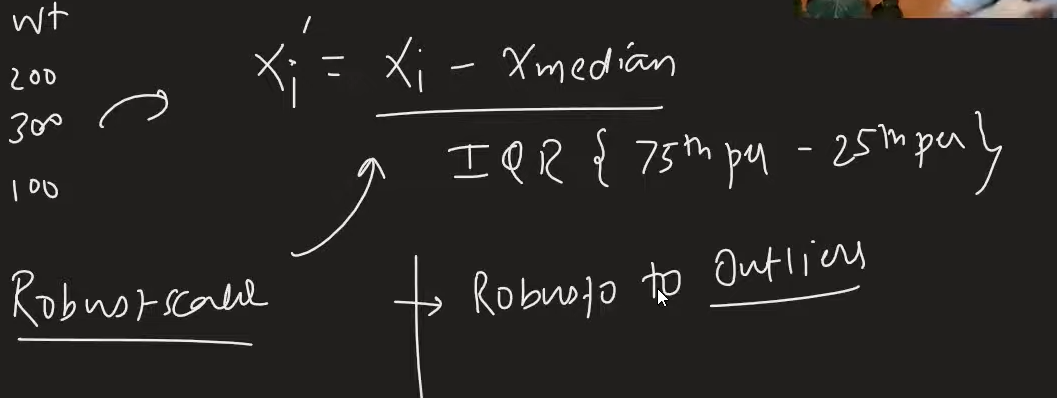 wt
200
300
100
Xi' = Xi - Xmedian
IQR { 75th per - 25th per }
Robust scale
Robust to Outliers